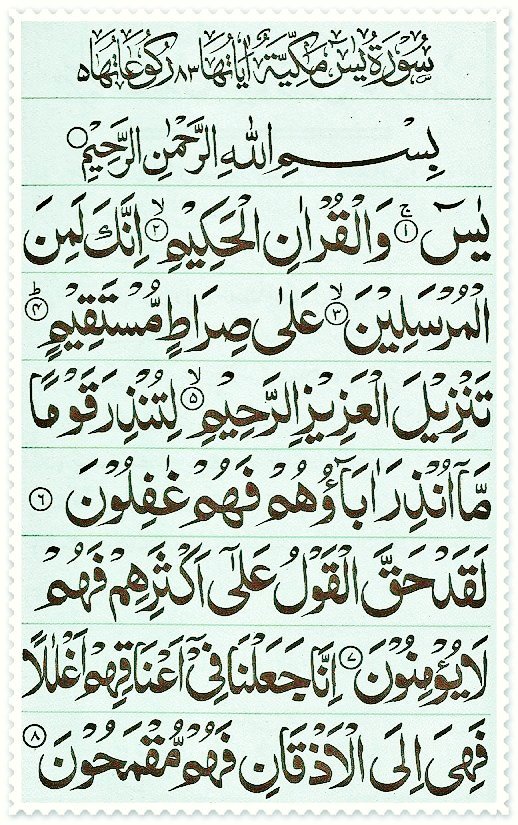 سُوْرَةُ يٰسٓ مَكِّيَّةٌ اٰيَاتُهَا ٨٣ رُكُوْعَاتُهَا ٥
بِسْمِ اللّٰهِ الرَّحْمٰنِ الرَّحِيْمِ ۝
يٰسٓ ۚ﴿١﴾ وَالْقُرْاٰنِ الْحَكِيْمِ ۙ﴿٢﴾ اِنَّكَ لَمِنَ
الْمُرْسَلِيْنَ ۙ﴿٣﴾ عَلٰى صِرَاطٍ مُّسْتَقِيْمٍ ؕ﴿٤﴾
تَنْزِيْلَ الْعَزِيْزِ الرَّحِيْمِ ۙ﴿٥﴾ لِتُنْذِرَ قَوْمًا
مَّاۤ اُنْذِرَ اٰبَآؤُهُمْ فَهُمْ غٰفِلُوْنَ ﴿٦﴾
لَقَدْ حَقَّ الْقَوْلُ عَلٰٓى اَكْثَرِهِمْ فَهُمْ
لَا يُؤْمِنُوْنَ ﴿٧﴾ اِنَّا جَعَلْنَا فِىْۤ اَعْنَاقِهِمْ اَغْلٰلًا
فَهِىَ اِلَى الْاَذْقَانِ فَهُمْ مُّقْمَحُوْنَ ﴿٨﴾